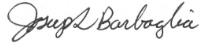 Joseph Barbaglia